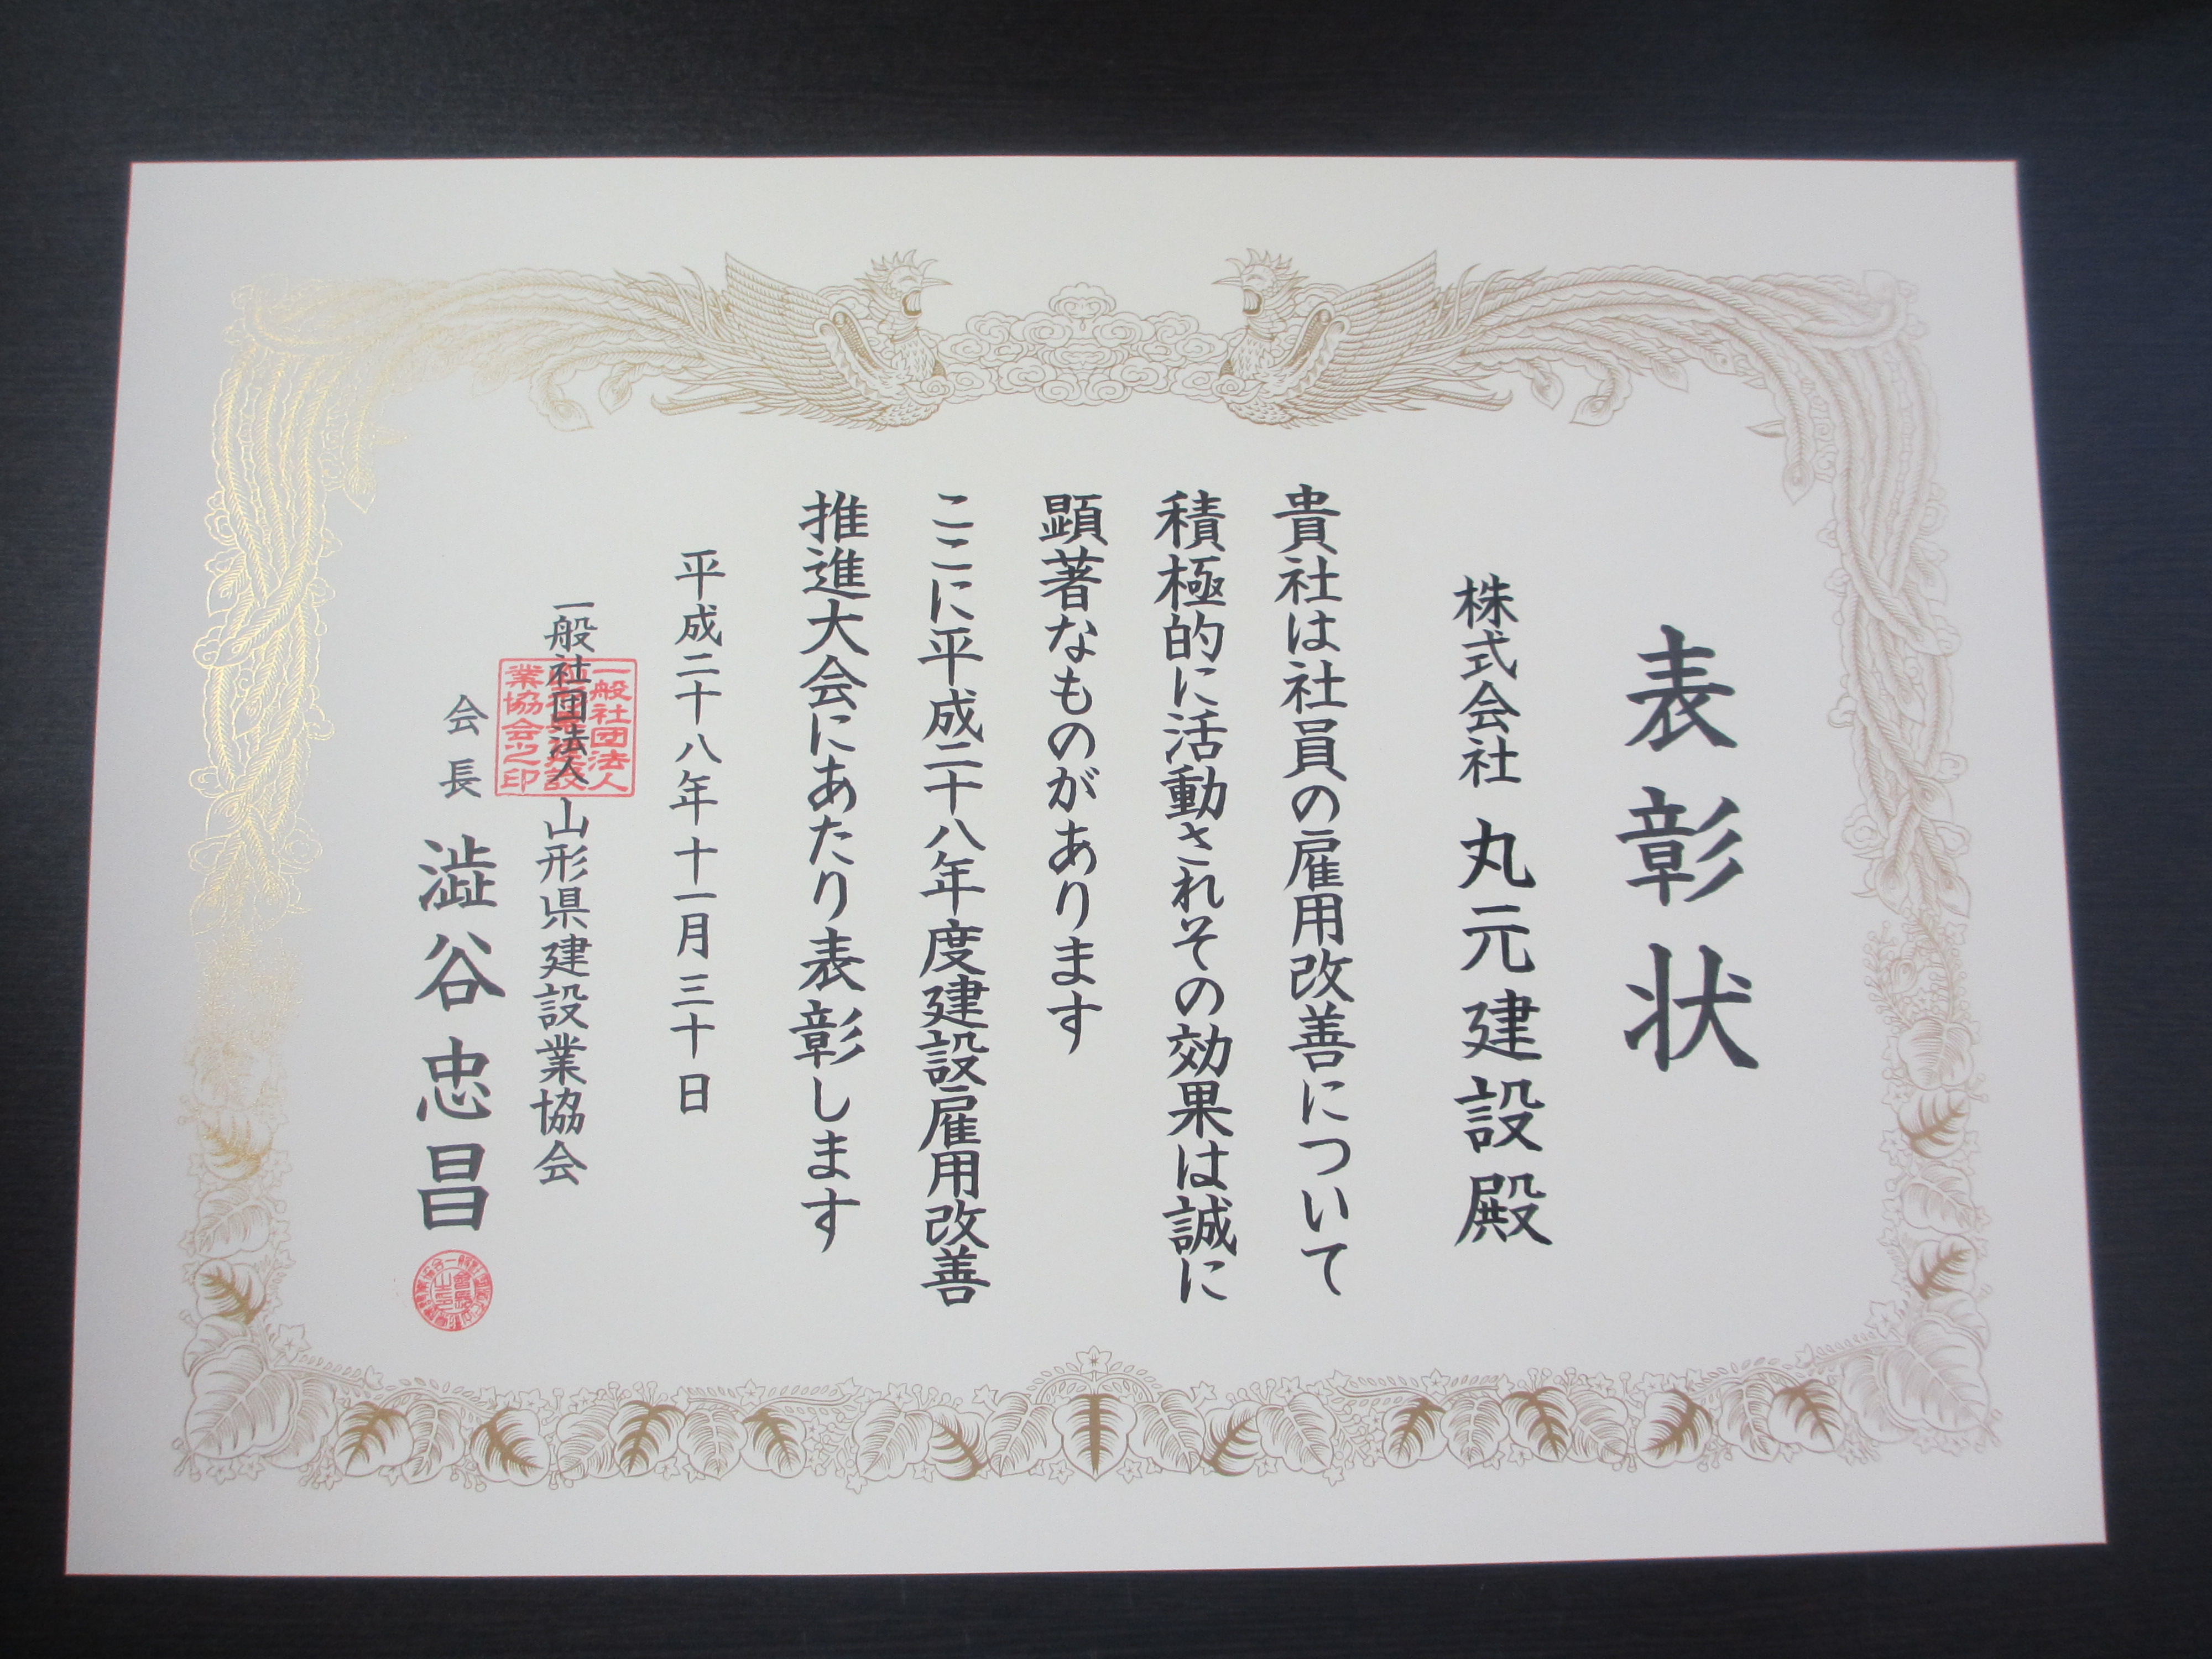 表彰状
株式会社 丸元建設殿
貴社は社員の雇用改善について
積極的に活動されその効果は誠に
顕著なものがあります
ここに平成二十八年度建設雇用改善
推進大会にあたり表彰します
平成二十八年十一月三十日
一般社団法人 山形県建設業協会
会長 澁谷忠昌
一般社団法人
業協会之印